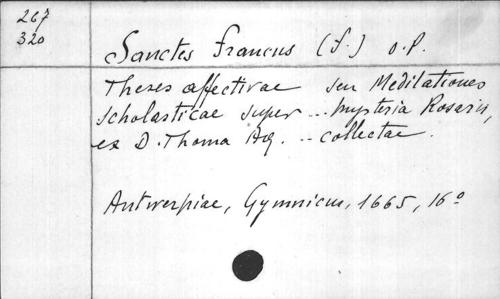 267
320
Sanctes Francus (F.) O.P.
Theses affectivae seu Meditationes
scholasticae super ... Mysteria Rosarii,
ex D. Thoma Aq. ... collectae.
Antwerpiae, Gymnicus, 1665, 16°